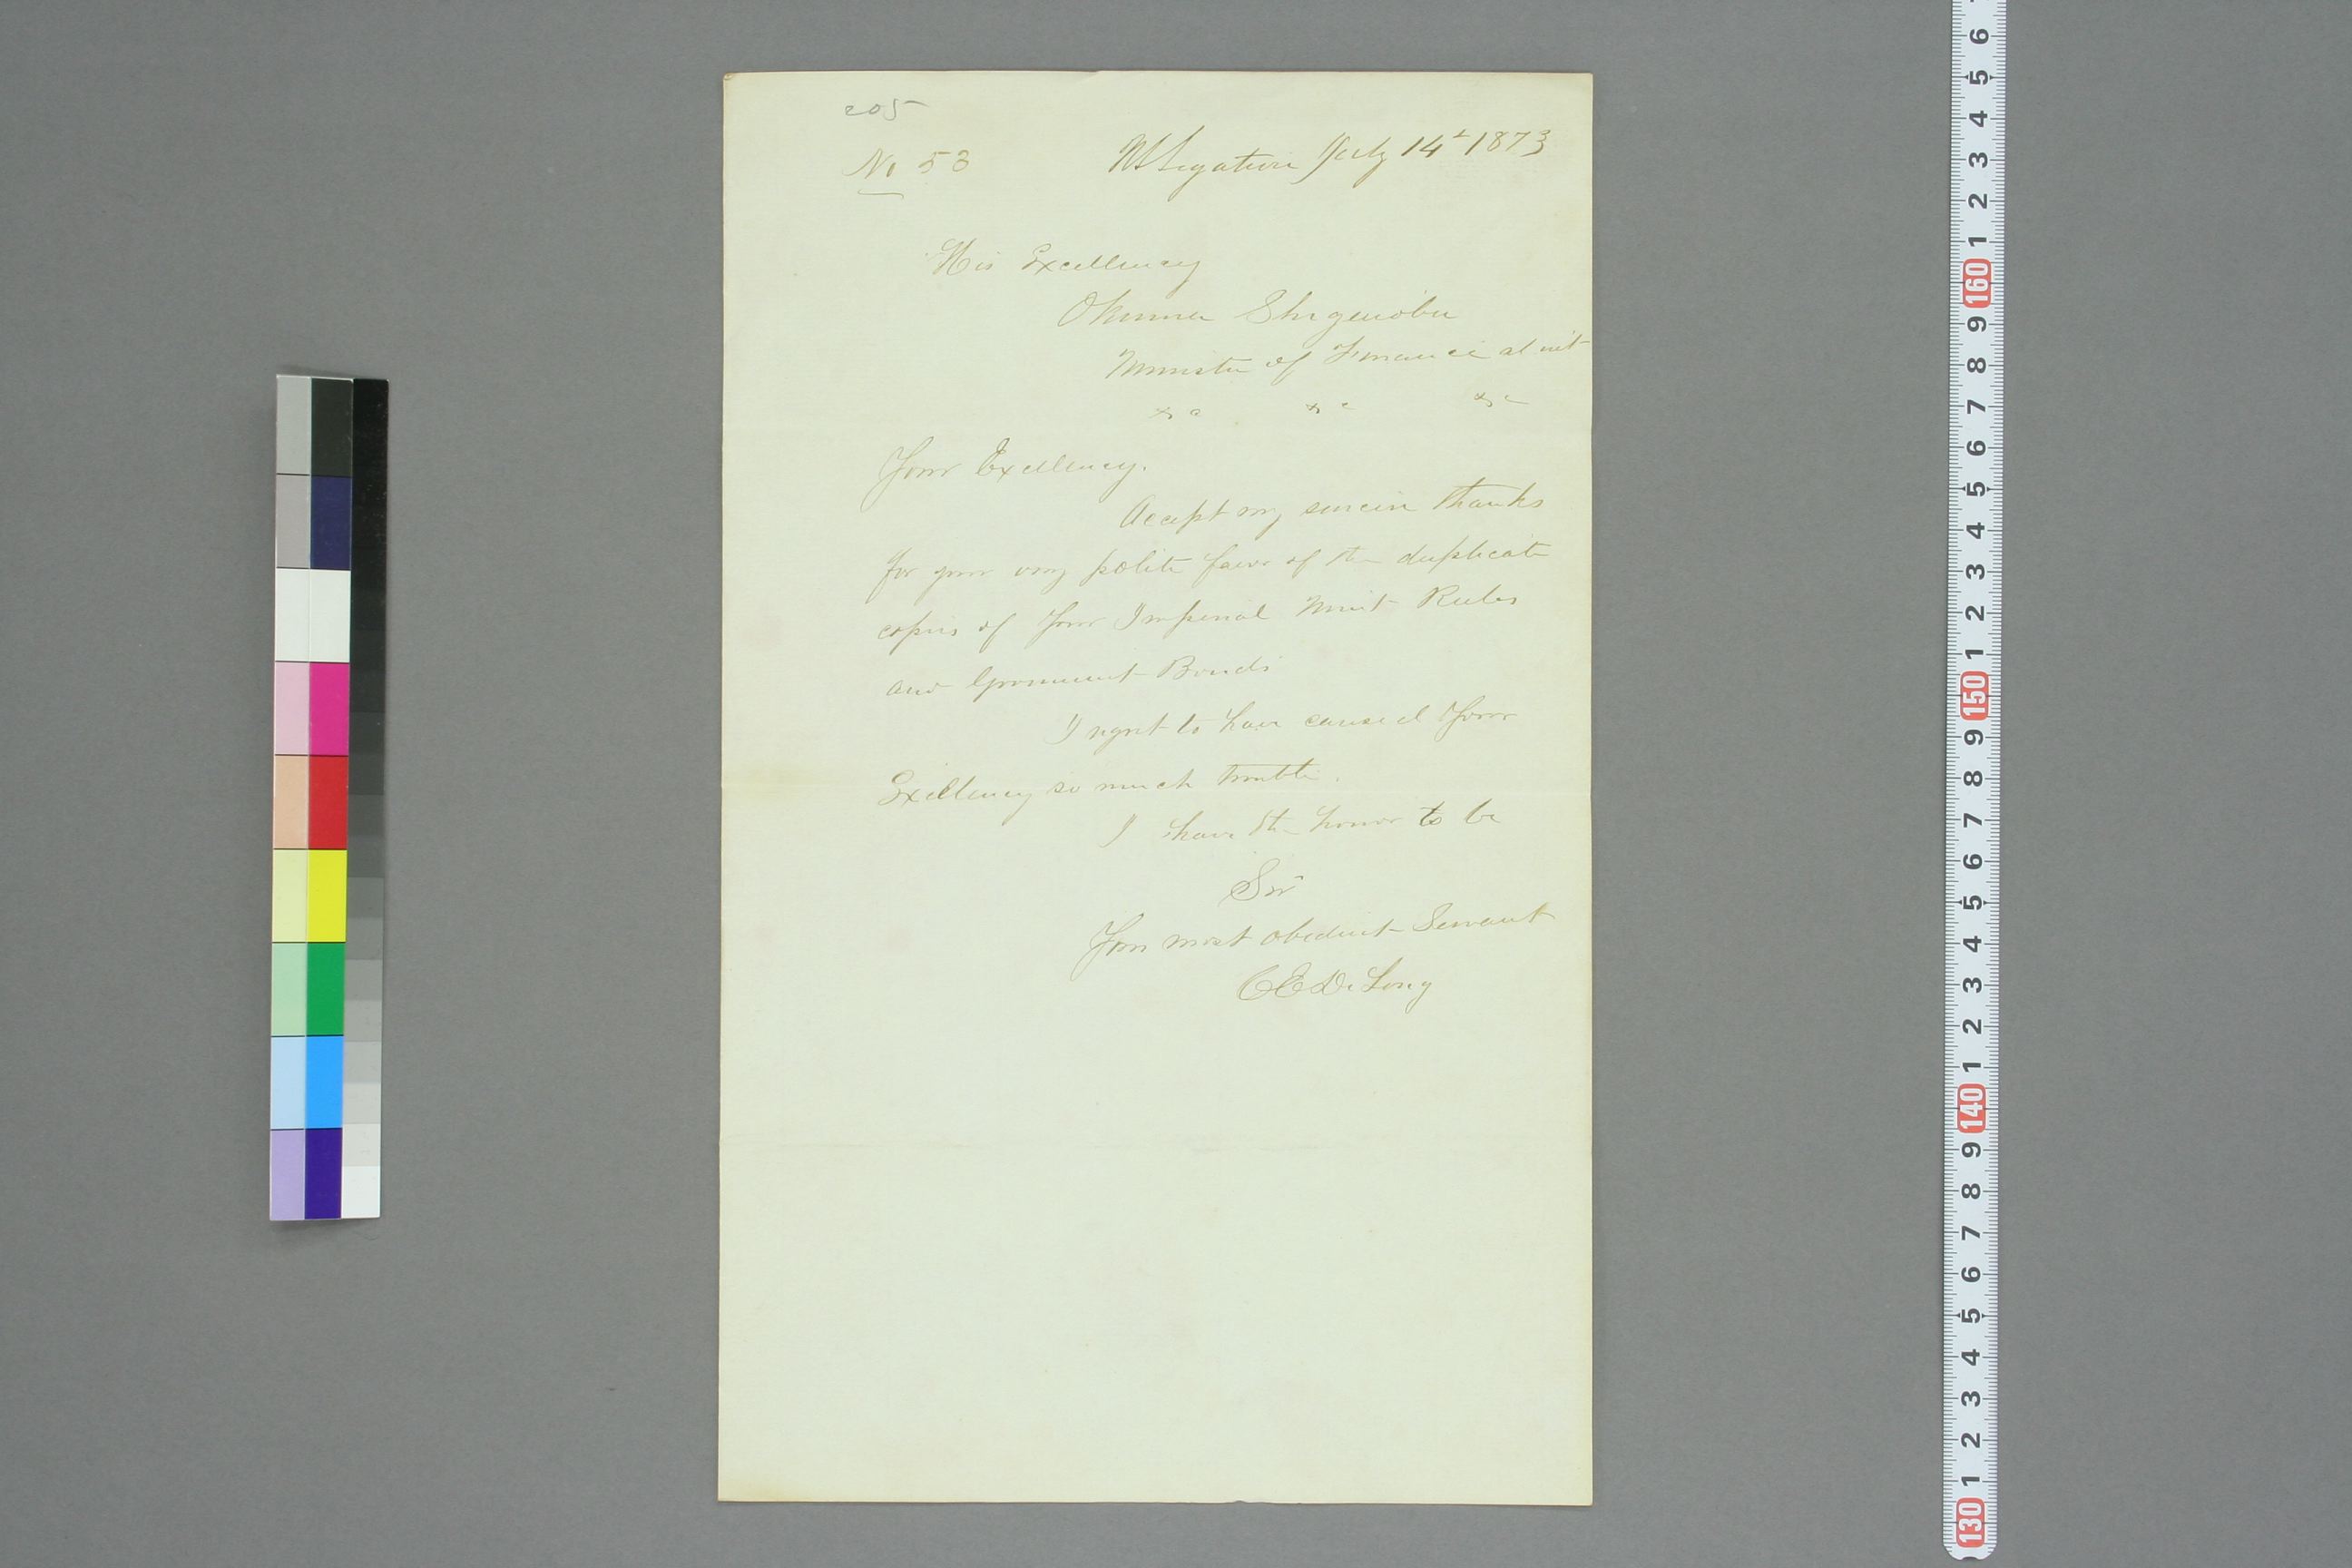 205
No 53
US Legation July 14th 1873
His Excellency
Okuma Shigenobu
Minister of Finance ad int
&c &c &c
Your Excellency.
Accept my sincere thanks
for your very polite favor of the duplicate
copies of Your Imperial Mint Rules
and Government Bonds
I regret to have caused Your
Excellency so much trouble.
I have the honor to be
Sir
Your most obedient Servant
C E De Long
6
5
4
3
2
1
160
9
8
7
6
5
4
3
2
1
150
9
8
7
6
5
4
3
2
1
140
9
8
7
6
5
4
3
2
1
130